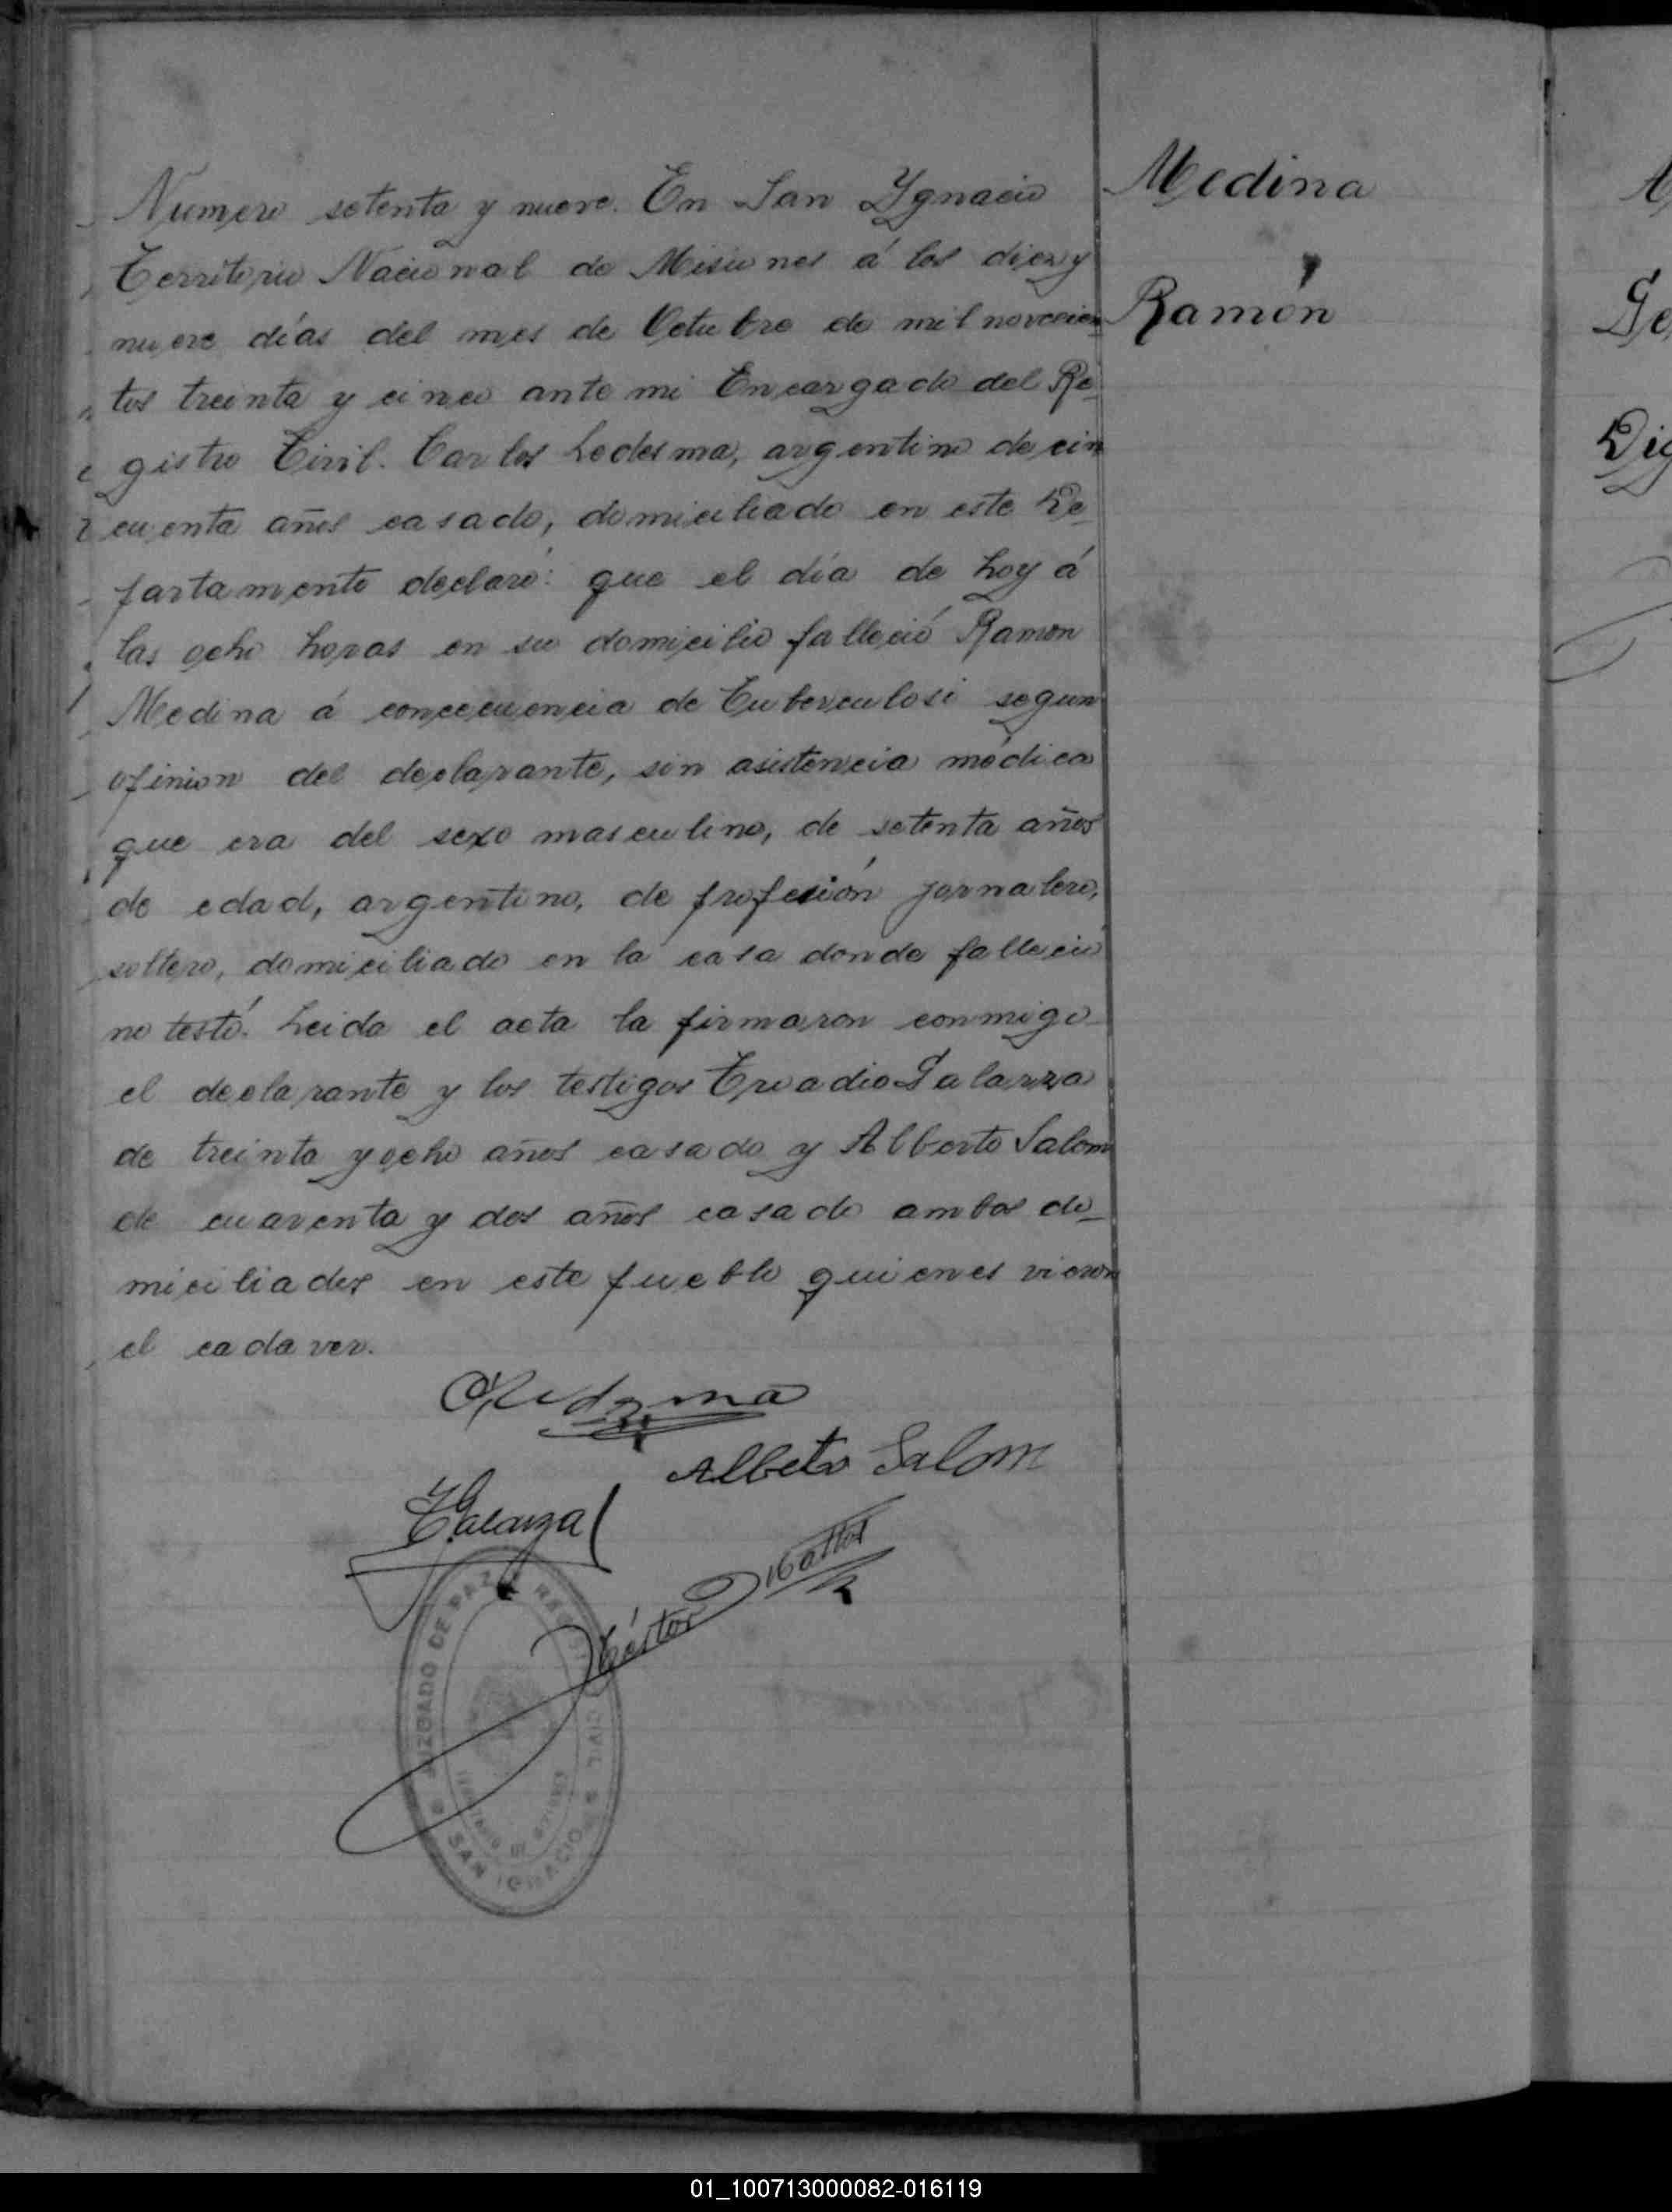 Numero setenta y nueve. En San Ygnacio
Territorio Nacional de Misiones á los diez y
nueve días del mes de Octubre de mil novecien
tos treinta y cinco ante mi Encargado del Re_
gistro Civil. Carlos Ledesma, argentino de cin
cuenta años casado, domiciliado en este De_
partamento declaró: que el día de hoy á
las ocho horas en su domicilio falleció Ramon
Medina á concecuencia de Tuberculosi segun
opinion del declarante, sin asistencia médica
que era del sexo masculino, de setenta años
de edad, argentino, de profesión jornalero,
soltero, domiciliado en la casa donde falleció
no testó. Leida el acta la firmaron conmigo
el declarante y los testigos Galarza
de treinta y ocho años casado y Alberto Salom
de cuarenta y dos años casado ambos do_
miciliados en este pueblo quienes vieron
el cadaver.
Medina
Ramón
CLedesma
Albeto Salom
Galarza
Cástor
JUZGADO DE PAZ
CIVIL
SAN IGNACIO
TERRITORIO DE MISIONES
Ge
Dig
01_100713000082-016119